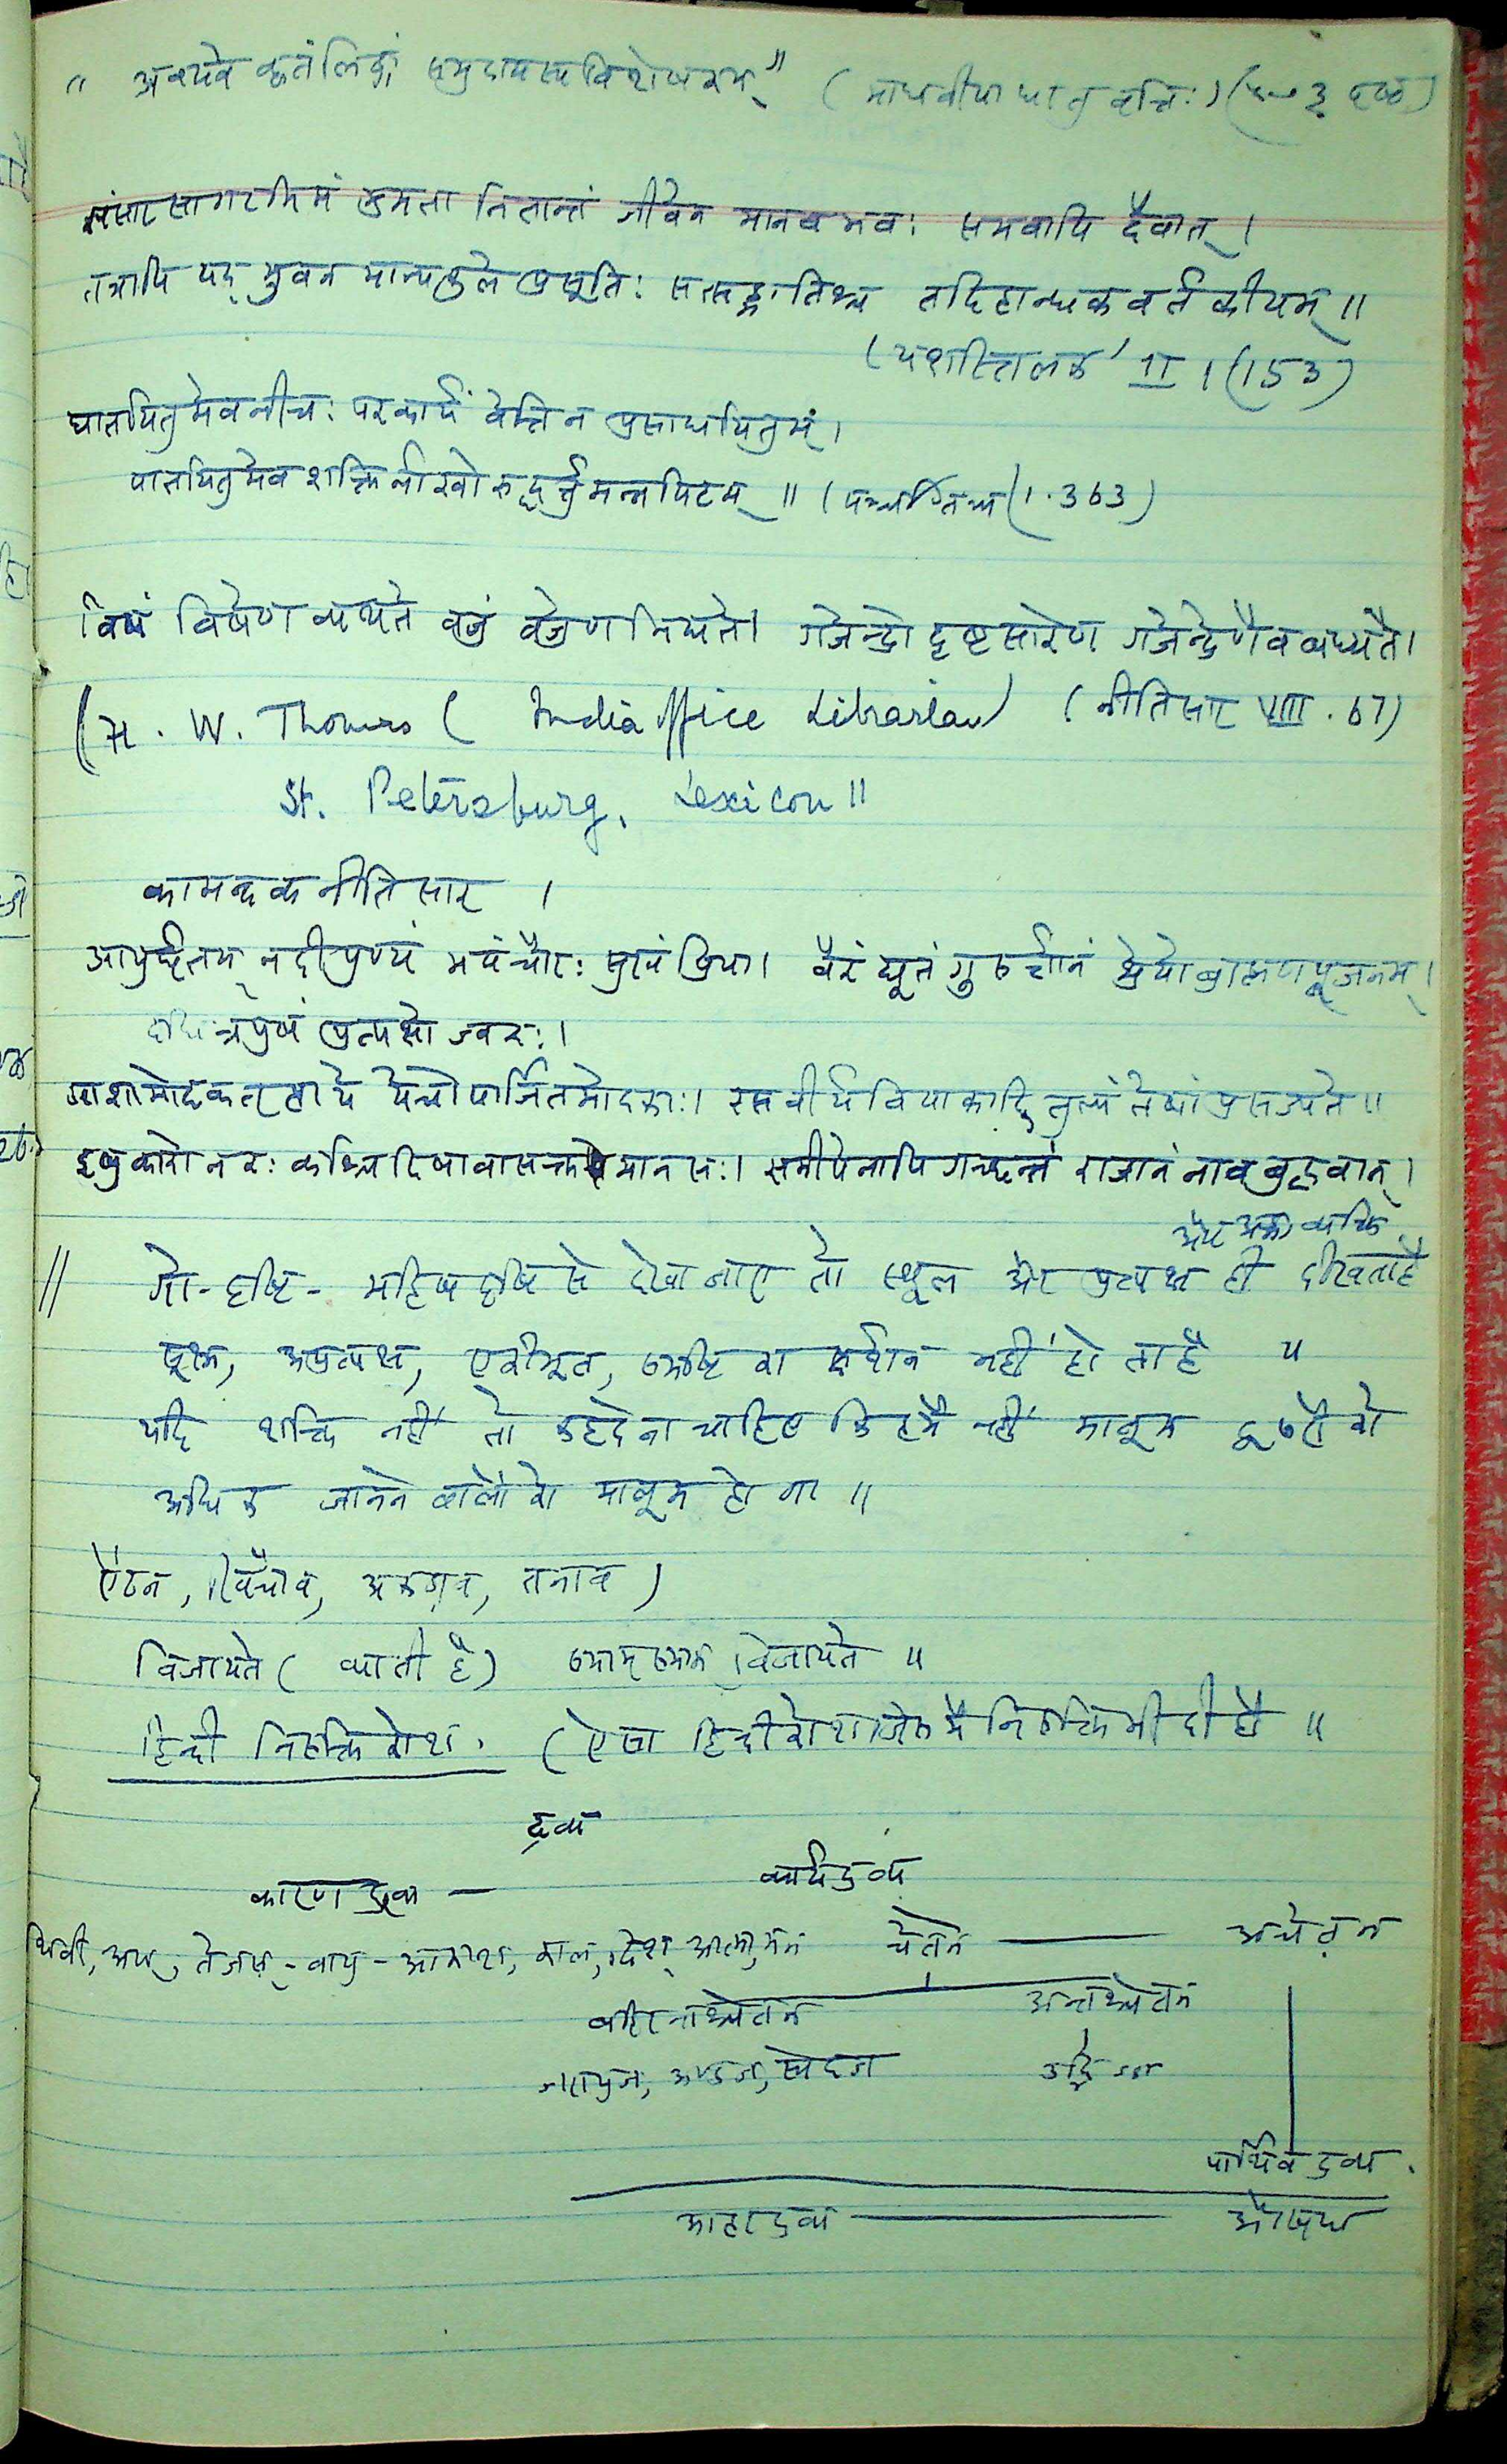 " अवयवे कृतं लिङ्गं समुदायस्य विशेषकम् " ( माधवीया धातु वृत्तिः )
संसार सागरमिमं भ्रमता नितान्तं जीवेन मानव भवः समवापि दैवात् ।
तत्रापि यद् भुवन मान्यकुले प्रसूतिः सत्सङ्गतिश्च तदिहान्धक वर्तकीयम् ॥
( यशस्तिलक II । (153)
घातयितुमेव नीचः परकार्यं वेत्ति न प्रसाधयितुम् ।
पातयितुमेव शक्तिर्नाखोरुद्धर्तुमन्नपिटम् ॥ ( पञ्चतन्त्र (1.363)
विषं विषेण व्यथते वज्रं वज्रेण भिद्यते। गजेन्द्रो दृष्टसारेण गजेन्द्रेणैव बध्यते।
( H. W. Thomas ( India office Librarian) ( नीतिसार VIII . 67)
St. Petersburg, Lexicon ॥
कामन्दक नीतिसार ।
आयुर्घृतम् नदीपुण्यं भयंचौरः सुखं प्रिया। वैरं द्यूतं गुरुर्ज्ञानं श्रेयो ब्राह्मणपूजनम् ।
दधित्रपुषं प्रत्यक्षो ज्वरः ।
आशामोदकतृप्ता ये ये चोपार्जितमोदकाः। रस वीर्य विपाकादि तुल्यं तेषां प्रसज्यते ॥
इषुकारो नरः कश्चिदिषावासक्तमानसः। समीपेनापि गच्छन्तं राजानं नावबुद्धवान् ।
व्यक्ति
// गो-दृष्टि - महिष दृष्टि से देखा जाए तो स्थूल और प्रत्यक्ष ही दीखता है
सूक्ष्म, अप्रत्यक्ष, एकीभूत, समष्टि का दर्शन नहीं होता है ॥
यदि शक्ति नहीं तो कह देना चाहिए कि हमें नहीं मालूम
अधिक जानने वालों को मालूम होगा ॥
ऐंठन, (खिंचाव, अकडाव, तनाव )
विजायते ( व्याती है) समाम् समाम् विजायते ॥
हिन्दी निरुक्ति कोश . ( ऐसा हिन्दी कोश जिसमें निरुक्ति भी दी हो ॥
द्रव्य
कारण द्रव्य — कार्यद्रव्य
थिवी, अप्, तेजस् - वायु - आकाश, काल, दिश् आत्मा, मन चेतन — अचेतन
बहिरन्तश्चेतन अन्तश्चेतन
जरायुज, अण्डज, स्वेदज उद्भिज्ज
पार्थिव द्रव्य .
आहारद्रव्य — औषध